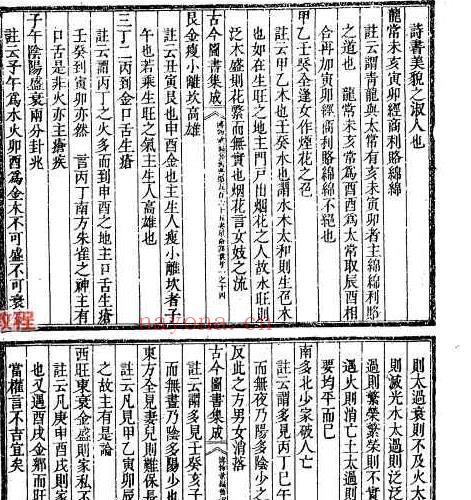 詩書美貌之淑人也
龍常未亥寅卯經商利路綿綿
註云謂青龍與太常有亥未寅卯者主綿綿利路
之道也 龍常未亥常為酉酉為太常取辰酉相
合再加寅卯經商利路綿綿不絕也
甲乙壬癸全逢女作煙花之召
註云甲乙木也壬癸水也謂水木太和則生召水
也如在生旺之地主門戶出烟花之人故水旺則
泛木盛則花繁而無實也烟花言女妓之流
古今圖書集成
艮金瘦小離坎高雄
註云丑寅艮也申酉金也主生人瘦小離坎者子
午也若乘生旺之氣主生人高雄也
三丁二丙到金口舌生瘡
註云謂丙丁之火多而到申酉之地主口舌生瘡
壬癸到寅卯亦然 言丙丁南方朱雀之神主有
口舌是非火亦主瘡疾
子午陰陽盛衰兩分卦兆
註云子午為水火卯酉為金木不可盛不可衰
則太過衰則不及火太
則滅光水太過則泛泛
過則繁榮繁榮則不實
遇火則消亡土太過則
要均平而巳
南多北少家破人亡
註云謂多見丙丁巳午
而無夜乃陽多陰少之
反此之方男女消落
古今圖書集成
註云謂多見壬癸亥子
而無晝乃陰多陽少也
東方全見妻兒則難保長
註云凡見甲乙寅卯辰
之故主有是論
西旺東衰金盛則家私不
註云凡庚申酉戌則家
也又遇酉戌金鄉而旺
當權言不吉宜矣
教程
nayona.cn